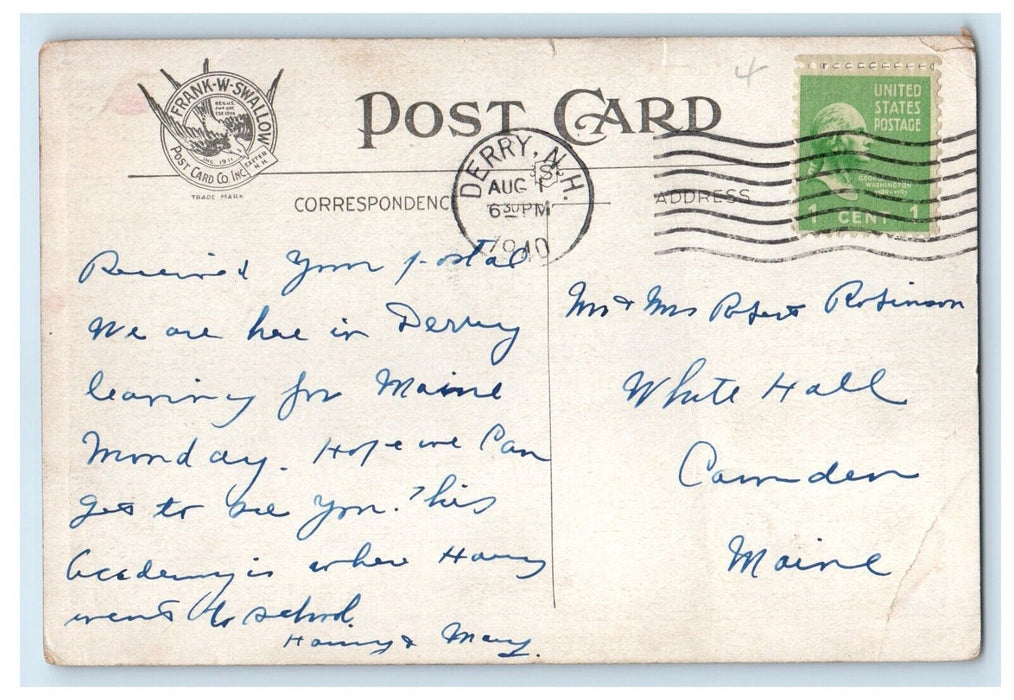 FRANK-W-SWALLOW
POST CARD CO. INC.
INC. 1911
EXETER N.H.
TRADE MARK
POST CARD
4
DERRY, N.H.
AUG 1
6 30 PM
1940
UNITED
STATES
POSTAGE
GEORGE
WASHINGTON
1 CENT 1
CORRESPONDENC
ADDRESS
Received your postal
We are here in Derry
leaving for Maine
Monday. Hope we can
get to see you. This
academy is where Harry
went to school.
Harry & Mary.
Mr & Mrs Robert Robinson
White Hall
Camden
Maine